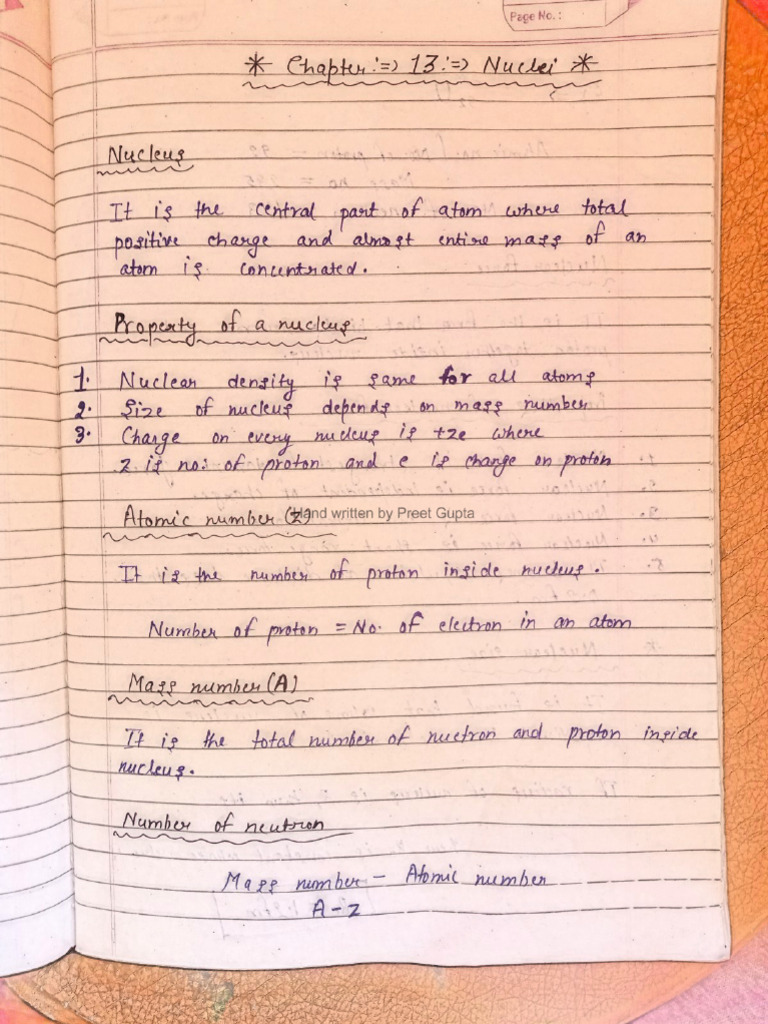 Page No.:
* Chapter :=> 13 :=> Nuclei *
Nucleus
It is the central part of atom where total
positive charge and almost entire mass of an
atom is concentrated.
Property of a nucleus
1. Nuclear density is same for all atoms
2. Size of nucleus depends on mass number
3. Charge on every nucleus is +ze where
z is no: of proton and e is charge on proton
Atomic number (z)
Hand written by Preet Gupta
It is the number of proton inside nucleus.
Number of proton = No. of electron in an atom
Mass number (A)
It is the total number of nuetron and proton inside
nucleus.
Number of neutron
Mass number - Atomic number
A-z